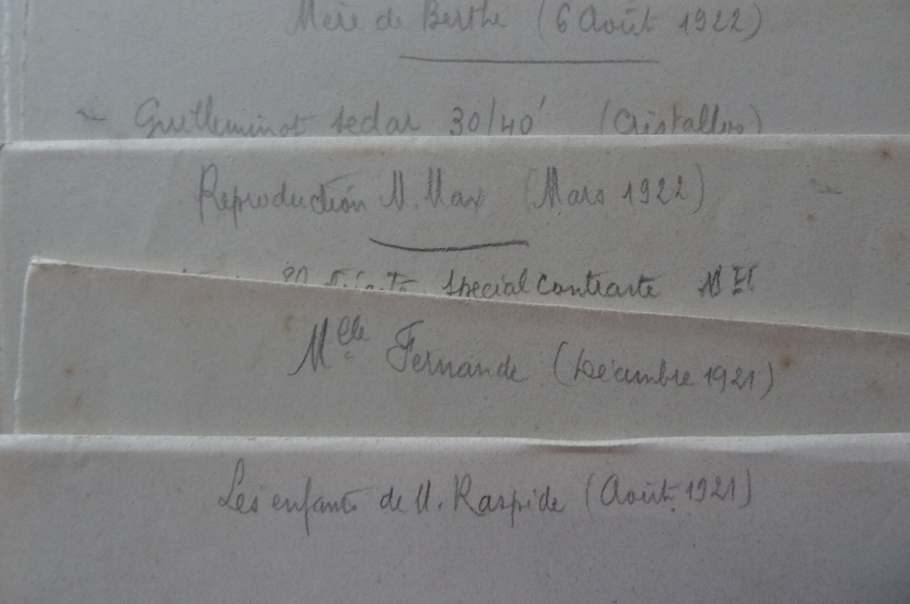 Mère de Berthe (6 Août 1922)
~ Guilleminot 30/40' (Cristallos)
Reproduction M. Max (Mars 1922)
special contraste
Mlle Fernande (Décembre 1921)
Les enfants de M. Raspide (Août 1921)